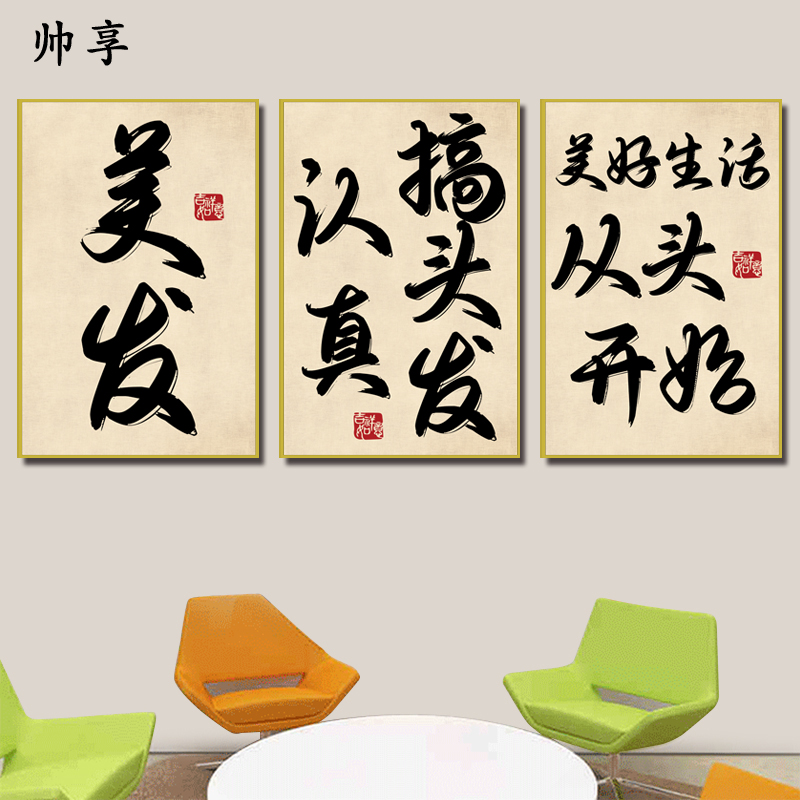 帅享
美发
搞头发
认真
美好生活
从头
开始